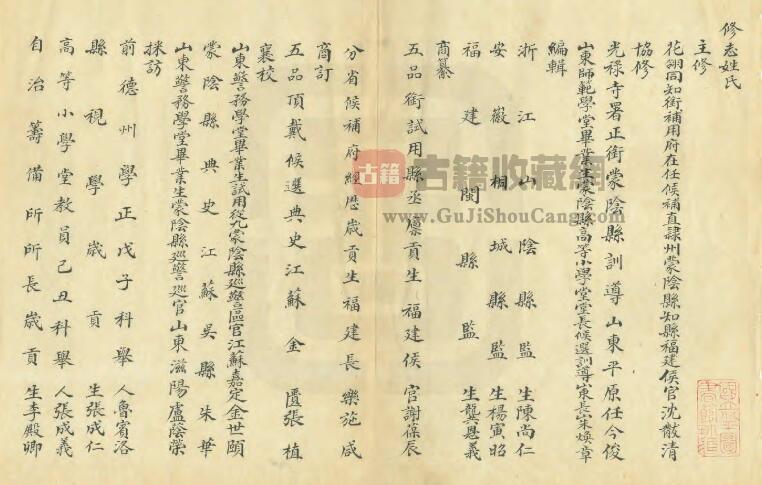 修志姓氏
主修
花翎同知銜補用府在任候補直隸州蒙陰縣知縣福建侯官沈黻清
協修
光祿寺署正銜蒙陰縣訓導山東平原任令俊
山東師範學堂畢業生蒙陰縣高等小學堂堂長候選訓導山東長山朱煥章
編輯
浙江山陰縣監生陳尚仁
安徽桐城縣監生楊寅昭
福建閩縣監生龔恩義
商纂
五品銜試用縣丞廩貢生福建侯官謝葆辰
分省候補府經歷歲貢生福建長樂施咸
商訂
五品頂戴候選典史江蘇金匱張植
襄校
山東警務學堂畢業生試用從九蒙陰縣巡警區官江蘇嘉定金世頤
蒙陰縣典史江蘇吳縣朱華
山東警務學堂畢業生蒙陰縣巡警巡官山東滋陽盧蔭榮
採訪
前德州學正戊子科舉人魯賓洛
縣視學歲貢生張成仁
高等小學堂教員己丑科舉人張成義
自治籌備所所長歲貢生李殿卿
古籍 古籍收藏網
www.GuJiShouCang.com